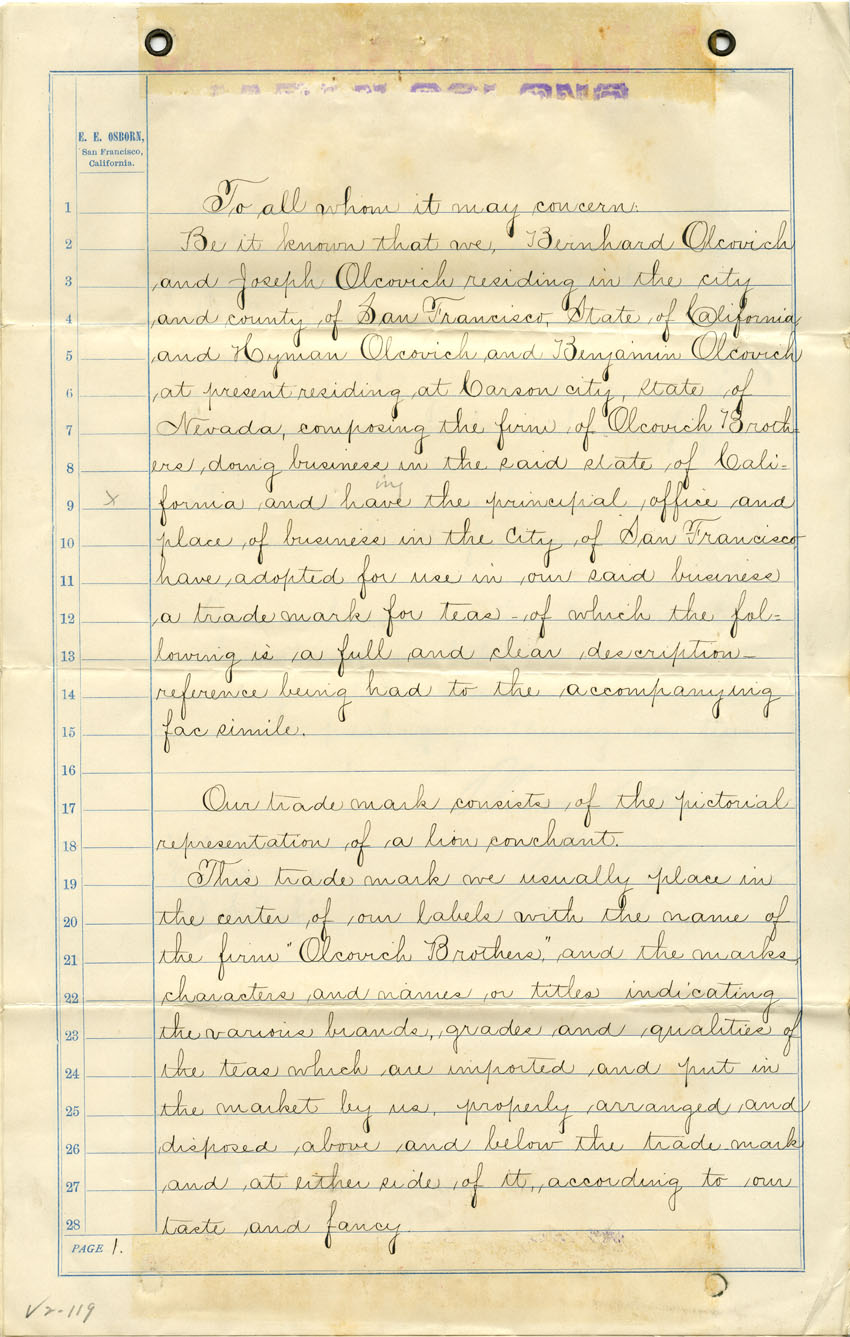 E. E. OSBORN,
San Francisco,
California.
1 To all whom it may concern:
2 Be it known that we, Bernhard Olcovich
3 and Joseph Olcovich residing in the city
4 and county of San Francisco, State of California
5 and Hyman Olcovich and Benjamin Olcovich
6 at present residing at Carson city, State of
7 Nevada, composing the firm of Olcovich Broth-
8 ers, doing business in the said state of Cali=
ing
9 x fornia and have the principal office and
10 place of business in the City of San Francisco
11 have adopted for use in our said business
12 a trade mark for teas - of which the fol=
13 lowing is a full and clear description-
14 reference being had to the accompanying
15 fac simile.
16
17 Our trade mark consists of the pictorial
18 representation of a lion conchant.
19 This trade mark we usually place in
20 the center of our labels with the name of
21 the firm "Olcovich Brothers," and the marks,
22 characters and names or titles indicating
23 the various brands, grades and qualities of
24 the teas which are imported and put in
25 the market by us, properly arranged and
26 disposed above and below the trade-mark
27 and at either side of it, according to our
28 taste and fancy.
PAGE 1.
V2-119